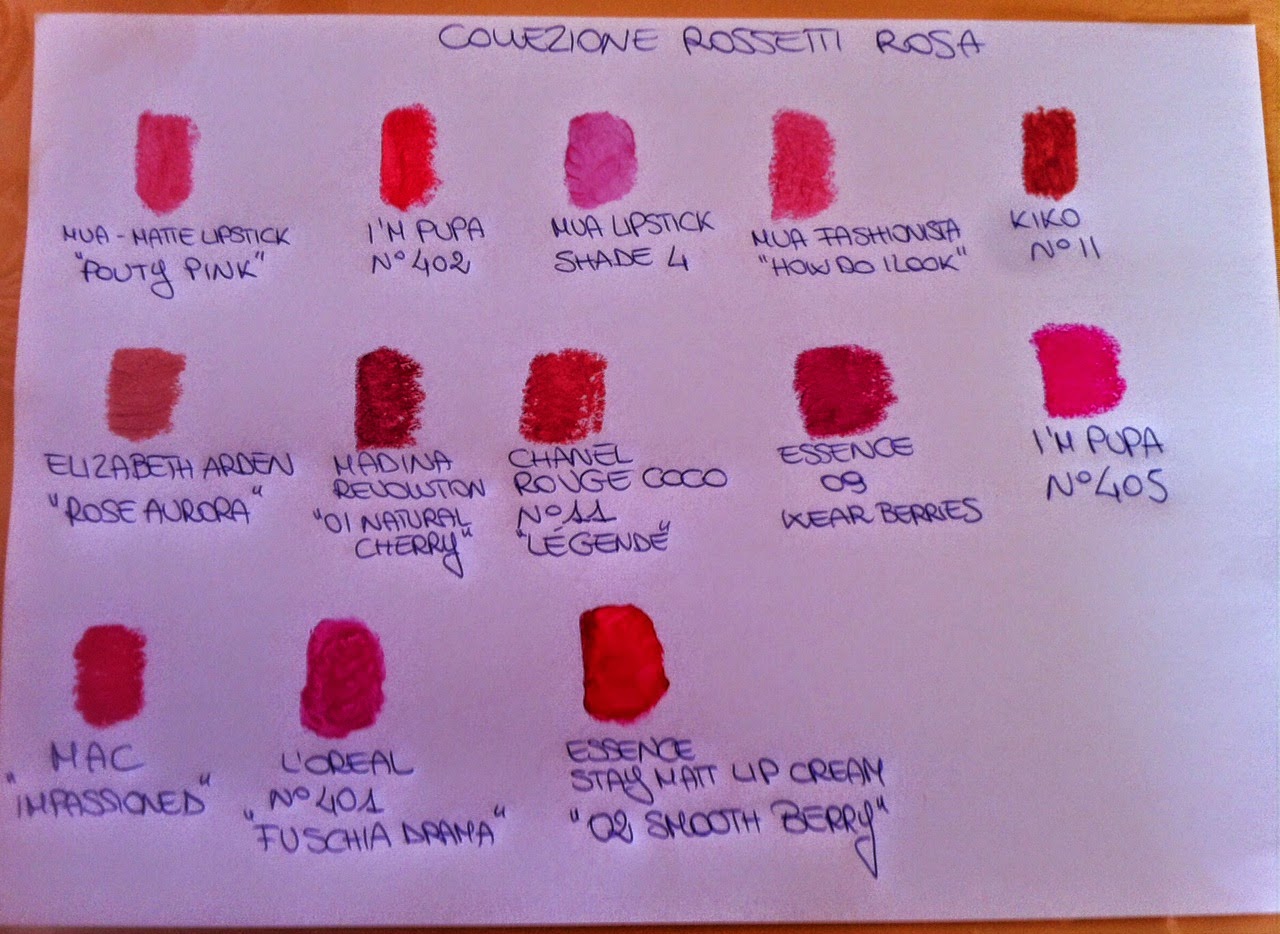 COLLEZIONE ROSSETTI ROSA
MUA - MATTE LIPSTICK
"POUTY PINK"
I'M PUPA
N° 402
MUA LIPSTICK
SHADE 4
MUA FASHIONISTA
"HOW DO I LOOK"
KIKO
N° 11
ELIZABETH ARDEN
"ROSE AURORA"
MADINA
REVOLUTION
"01 NATURAL
CHERRY"
CHANEL
ROUGE COCO
N° 11
"LÉGENDE"
ESSENCE
09
WEAR BERRIES
I'M PUPA
N° 405
MAC
"IMPASSIONED"
L'OREAL
N° 401
"FUSCHIA DRAMA"
ESSENCE
STAY MATT LIP CREAM
"02 SMOOTH BERRY"